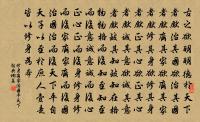 古之欲明明德於天下
者先治其國欲治其國
者先齊其家欲齊其家
者先修其身欲修其身
者先正其心欲正其心
者先誠其意欲誠其意
者先致其知致知在格
物物格而后知至知至
而后意誠意誠而后心
正心正而后身修身修
而后家齊家齊而后國
治國治而后天下平自
天子以至於庶人壹是
皆以修身為本